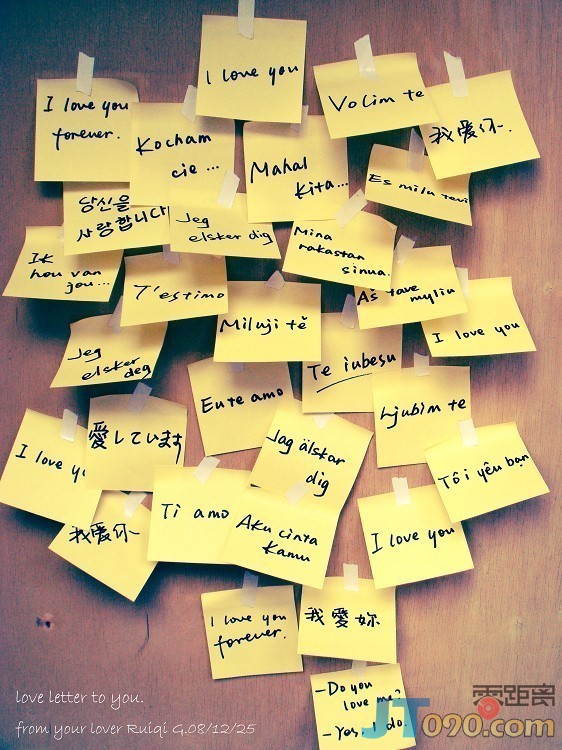 I love you
I love you
forever.
Kocham
cie ...
Volim te
我爱你.
Mahal
kita...
Es milu tevi
당신을
사랑합니다
Jeg
elsker dig
Mina
rakastan
sinua.
Ik
hou van
jou...
T'estimo
Aš tave
myliu
Miluji tě
I love you
Jeg
elsker deg
Te iubesu
Eu te amo
Ljubim te
愛しています
I love y
Jag älskar
dig
Tôi yêu bạn
Ti amo
Aku cinta
Kamu
I love you
我爱你
I love you
forever.
我愛妳
-Do you
love me?
-Yes, I do.
love letter to you.
from your lover Ruiqi G.08/12/25
零距离
JT090.com